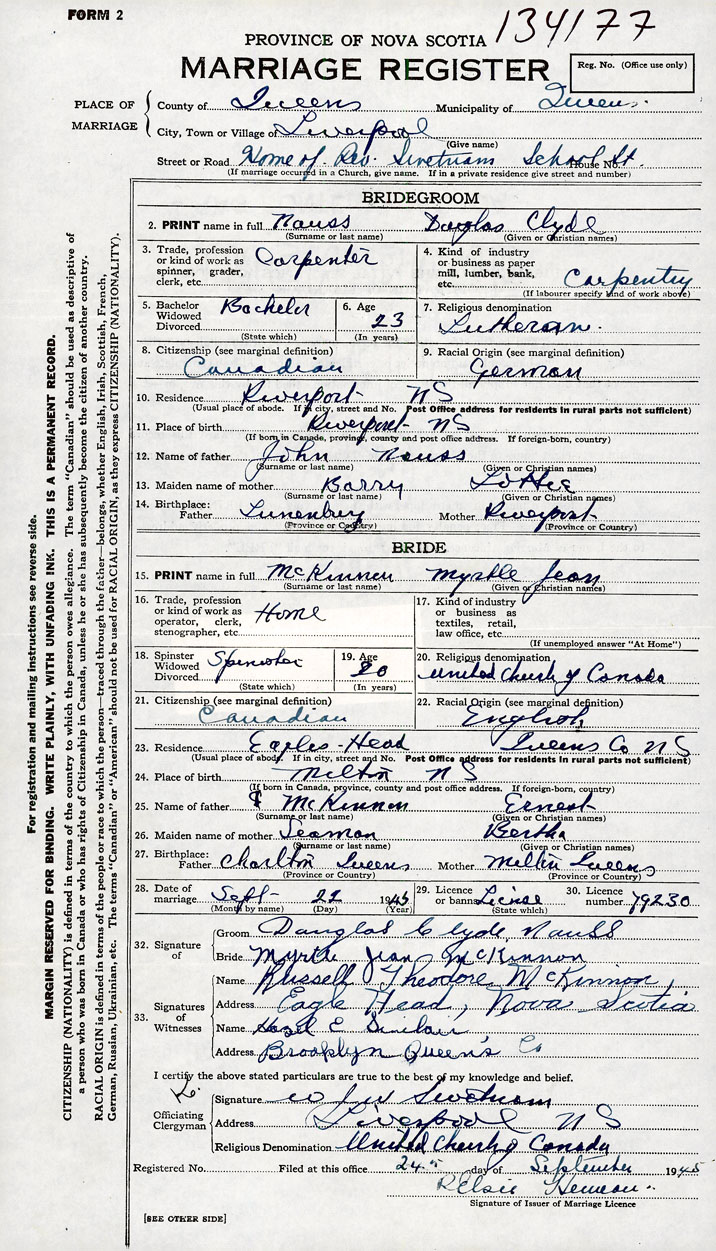 FORM 2
134177
PROVINCE OF NOVA SCOTIA
MARRIAGE REGISTER
Reg. No. (Office use only)
PLACE OF MARRIAGE
County of Queens Municipality of Queens
City, Town or Village of Liverpool
(Give name)
Street or Road Home of Rev. Swetnam School St. House No.
(If marriage occurred in a Church, give name. If in a private residence give street and number)
BRIDEGROOM
2. PRINT name in full Nauss Douglas Clyde
(Surname or last name) (Given or Christian names)
3. Trade, profession or kind of work as spinner, grader, clerk, etc. Carpenter
4. Kind of industry or business as paper mill, lumber, bank, etc. Carpentry
(If labourer specify kind of work above)
5. Bachelor Widowed Divorced Bachelor
(State which)
6. Age 23
(In years)
7. Religious denomination Lutheran.
8. Citizenship (see marginal definition) Canadian
9. Racial Origin (see marginal definition) German
10. Residence Riverport NS
(Usual place of abode. If in city, street and No. Post Office address for residents in rural parts not sufficient)
11. Place of birth Riverport NS
(If born in Canada, province, county and post office address. If foreign-born, country)
12. Name of father John Nauss
(Surname or last name) (Given or Christian names)
13. Maiden name of mother Barry Lottie
(Surname or last name) (Given or Christian names)
14. Birthplace: Father Lunenburg Mother Riverport
(Province or Country) (Province or Country)
BRIDE
15. PRINT name in full McKinnon Myrtle Jean
(Surname or last name) (Given or Christian names)
16. Trade, profession or kind of work as operator, clerk, stenographer, etc. Home
17. Kind of industry or business as textiles, retail, law office, etc.
(If unemployed answer "At Home")
18. Spinster Widowed Divorced Spinster
(State which)
19. Age 20
(In years)
20. Religious denomination United Church of Canada
21. Citizenship (see marginal definition) Canadian
22. Racial Origin (see marginal definition) English
23. Residence Eagles-Head Queens Co NS
(Usual place of abode. If in city, street and No. Post Office address for residents in rural parts not sufficient)
24. Place of birth Milton NS
(If born in Canada, province, county and post office address. If foreign-born, country)
25. Name of father McKinnon Ernest
(Surname or last name) (Given or Christian names)
26. Maiden name of mother Seaman Bertha
(Surname or last name) (Given or Christian names)
27. Birthplace: Father Charlton Queens Mother Milton Queens
(Province or Country) (Province or Country)
28. Date of marriage Sept- 22 1945
(Month by name) (Day) (Year)
29. Licence or banns License
(State which)
30. Licence number 79230
32. Signature of
Groom Douglas Clyde Nauss
Bride Myrtle Jean McKinnon
33. Signatures of Witnesses
Name Russell Theodore McKinnon,
Address Eagle Head, Nova Scotia
Name Hazel E Sinclair
Address Brooklyn Queen's Co
I certify the above stated particulars are true to the best of my knowledge and belief.
Officiating Clergyman
Signature W J W Swetnam
Address Liverpool NS
Religious Denomination United Church of Canada
Registered No. Filed at this office 24 day of September 1945
Signature of Issuer of Marriage Licence
[SEE OTHER SIDE]
For registration and mailing instructions see reverse side.
MARGIN RESERVED FOR BINDING. WRITE PLAINLY, WITH UNFADING INK. THIS IS A PERMANENT RECORD.
CITIZENSHIP (NATIONALITY) is defined in terms of the country to which the person owes allegiance. The term "Canadian" should be used as descriptive of
a person who was born in Canada or who has rights of Citizenship in Canada, unless he or she has subsequently become the citizen of another country.
RACIAL ORIGIN is defined in terms of the people or race to which the person—traced through the father—belongs, whether English, Irish, Scottish, French,
German, Russian, Ukrainian, etc. The terms "Canadian" or "American" should not be used for RACIAL ORIGIN, as they express CITIZENSHIP (NATIONALITY).